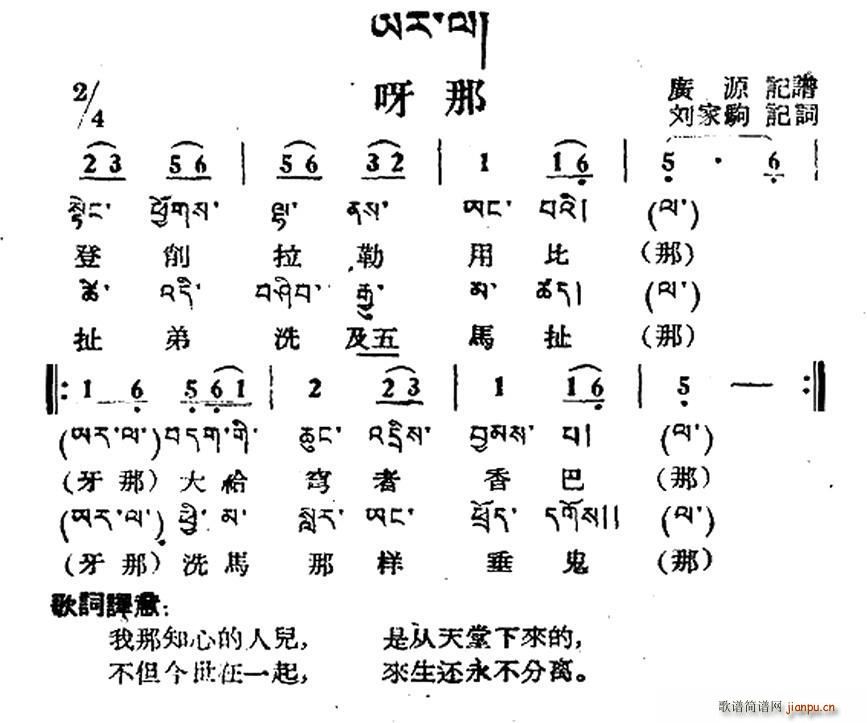 ཨར་ལ།
2/4 呀那 廣源 記譜
刘家駒 記詞
2 3 5 6 | 5 6 3 2 | 1 1 6 | 5 · 6 |
སྟེང་ ཕྱོགས་ ལྷ་ ནས་ ཡང་ བའི། (ལ་)
登 削 拉 勒 用 比 (那)
ཚེ་ འདི་ བཤིབ་ རྒྱུ་ མ་ ཚད། (ལ་)
扯 弟 洗 及五 馬 扯 (那)
‖: 1 6 5 6 1 | 2 2 3 | 1 1 6 | 5 — :‖
(ཨར་ལ་) བདག་གི་ ཆུང་ འདྲིས་ བྱམས་ པ། (ལ་)
(牙那) 大給 穹 者 香 巴 (那)
(ཨར་ལ་) ཕྱི་ མ་ སླར་ ཡང་ ཕྲོད་ དགོས།། (ལ་)
(牙那) 洗馬 那 样 垂 鬼 (那)
歌詞譯意:
我那知心的人兒, 是从天堂下來的,
不但今世在一起, 來生还永不分离。
歌谱简谱网
jianpu.cn